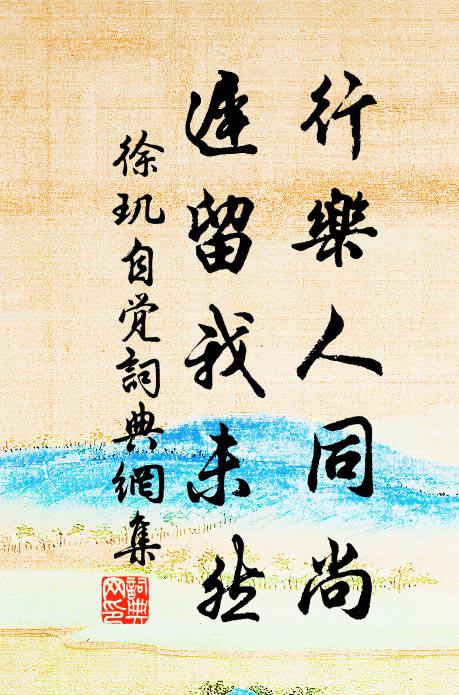 行樂人同尚
遲留我未然
徐玑自觉詞典網集
詞典